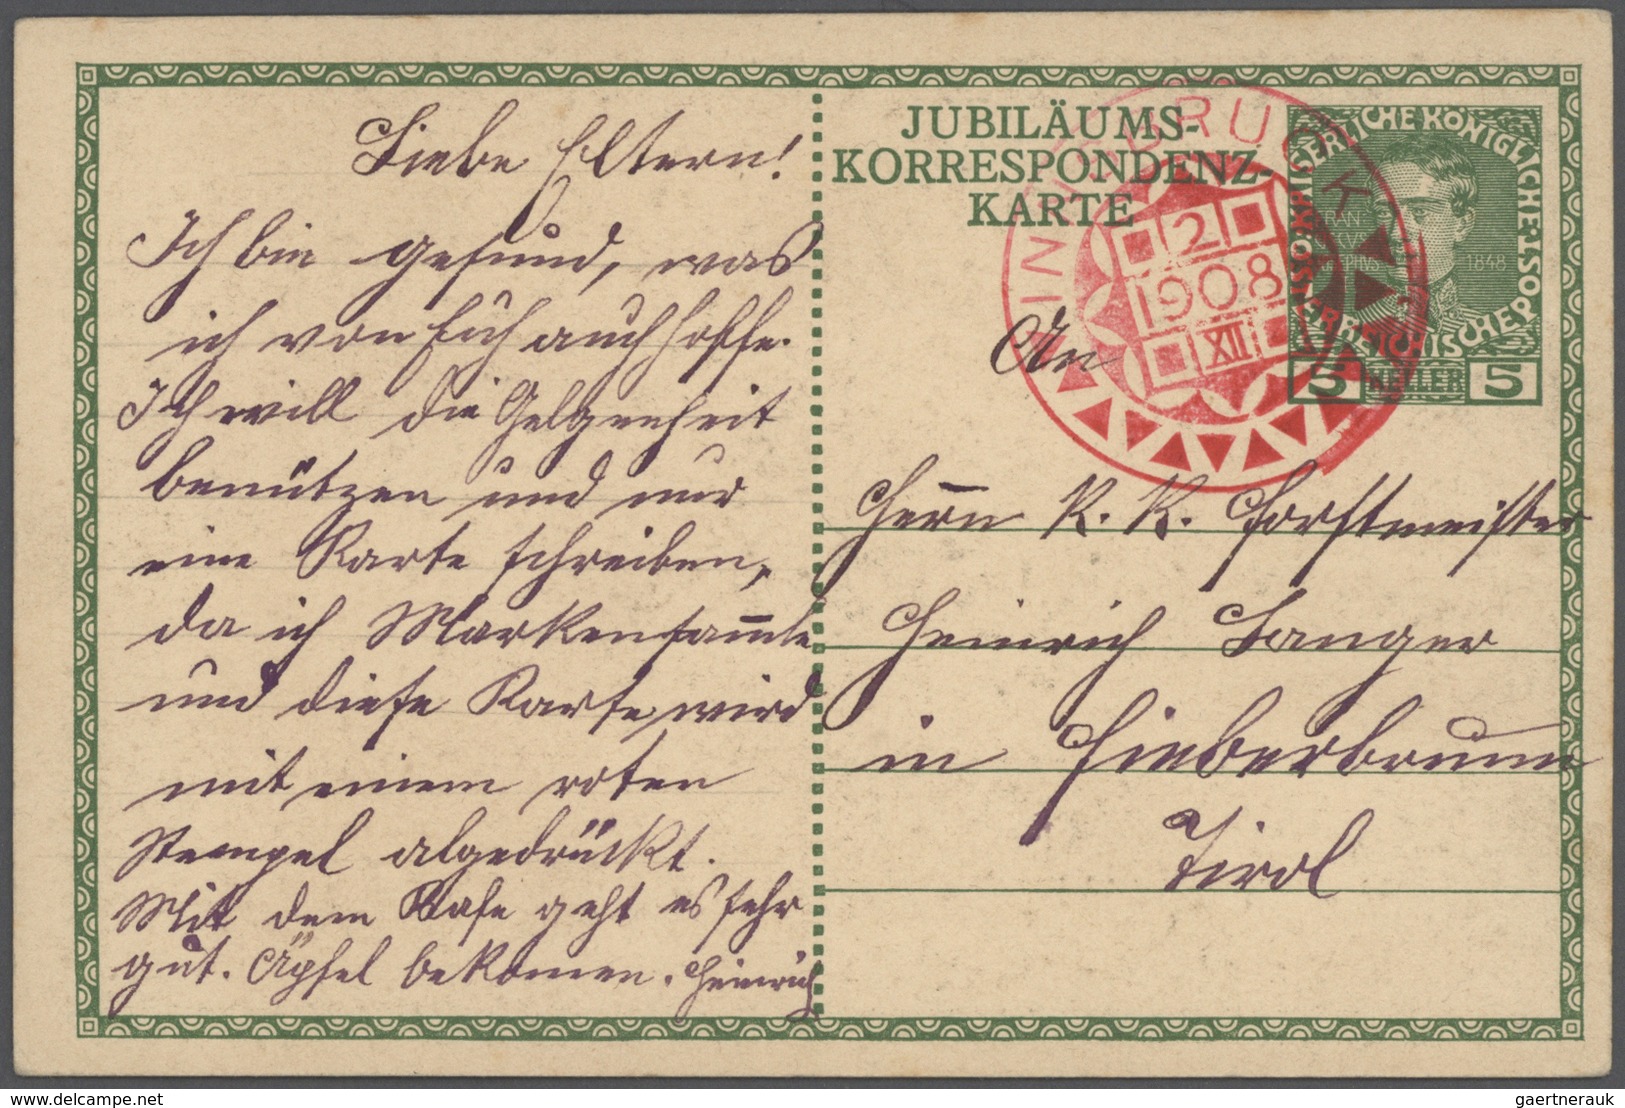 Liebe Eltern!
Ich bin gesund, was
ich von Euch auch hoffe.
Ich will die Gelgenheit
benützen und nur
eine Karte schreiben,
da ich Markensam̅le
und diese Karte wird
mit einem roten
Stempel abgedrückt.
Mit dem Base geht es sehr
gut. Äpfel bekommen. Heinrich
JUBILÄUMS-
KORRESPONDENZ-
KARTE
INNSBRUCK
2
1908
XII
KAISERLICHE KÖNIGLICHE
ÖSTERREICHISCHE POST
1848
5 HELLER 5
An
Herrn K. K. Forstmeister
Heinrich Langer
in Fieberbrunn
Tirol
gaertnerauk